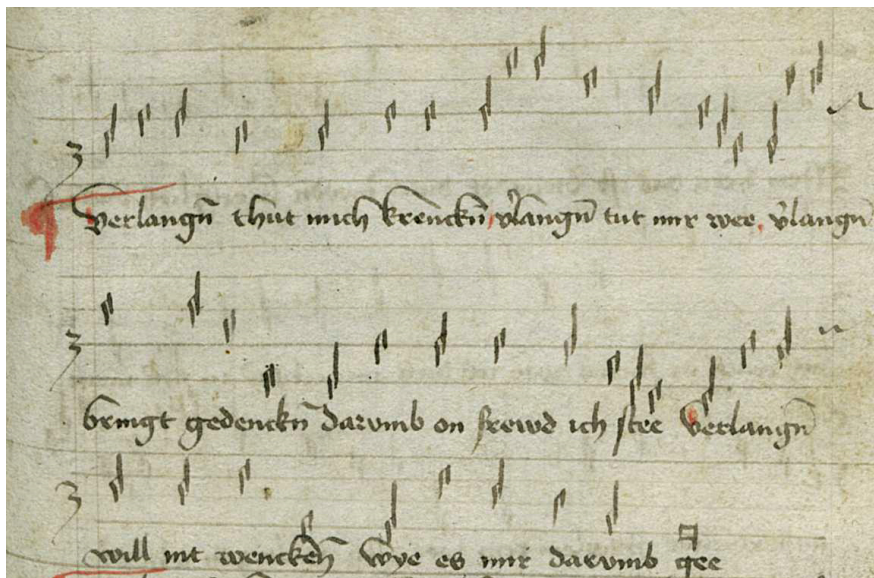 Verlangn̄ thut mich krenckn̄ v̓langn̄ tut mir wee, v̓langn̄
bringt gedenckn̄ darvmb on frewd ich stee Verlangn̄
will nit wencken̄ Wye es mir darvmb gee